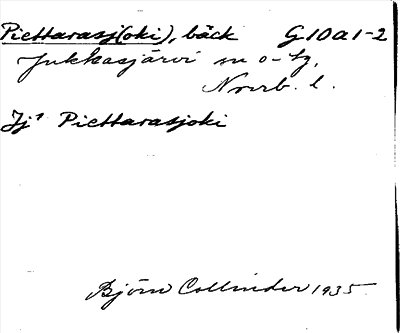 Piettarasj(oki), bäck G10a1-2
Jukkasjärvi sn o-tg,
Norrb. l.
Jj¹ Piettarasjoki
Björn Collinder 1935.